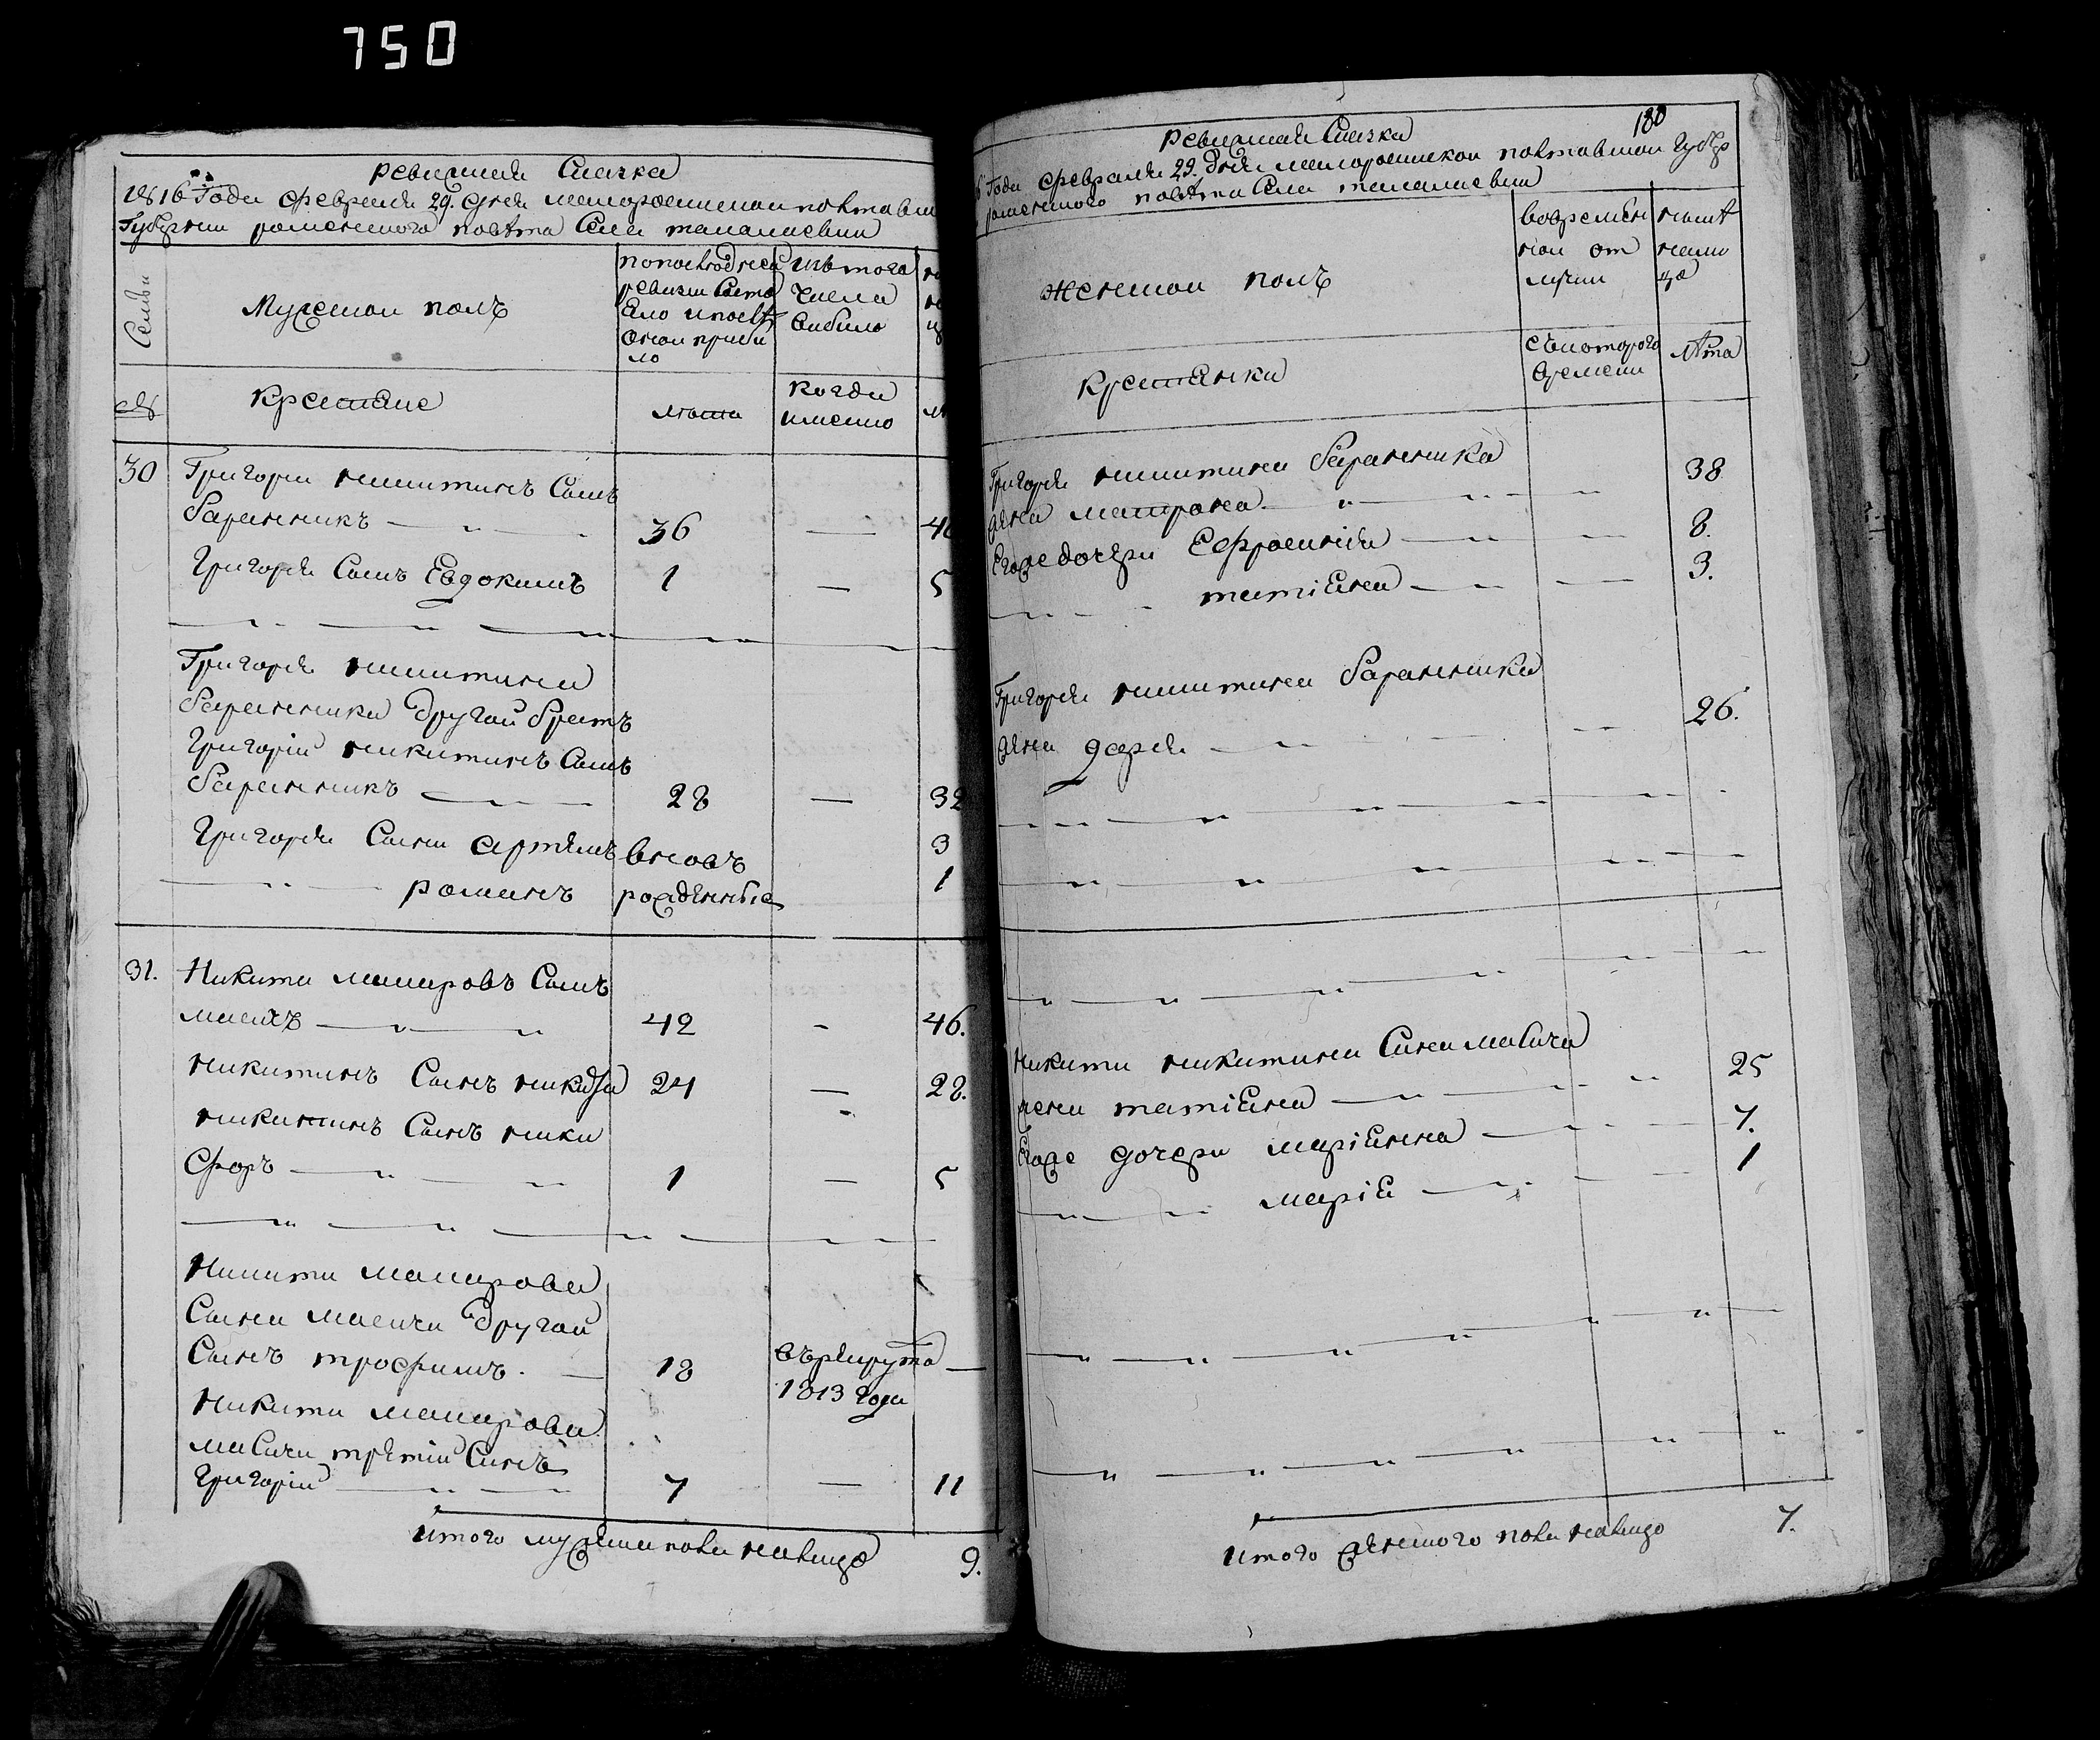 750
ревизская Сказка
1816 Года февраля 29. дня малороссискои полтавскои
Губернии роменского повѣта Села талалаевки
Семьи
Мужескои полъ
попоследнеи
ревизии Состо
яло и послѣ
онои прибы
ло
изъ того
числа
выбыло
№
Крестяне
лѣта
когда
именно
30
Григории никитинъ Сынъ
баранникъ
36
—
Григоря Сынъ Евдокимъ
1
—
5
Григоря никитина
баранника другой братъ
Григорій никитинъ Сынъ
баранникъ
28
—
32
Григоря Сыни артемъ
вновь
3
романъ
рожденные
1
31.
Никита Сынъ
масичъ
42
-
46.
никитинъ Сынъ никита
24
—
28.
никитинъ Сынъ ники
форъ
1
—
5
Никиты
Сына масича другой
Сынъ трофимъ.
18
върекруты
1813 года
—
Никиты
масича третій Сынъ
Григорій
7
—
11
итого мужеска пола налицо
9.
180
ревизская Сказка
Года февраля 29. дня малороссискои полтавскои Губер
роменского повѣта Села талалаевки
женскои полъ
вовремен
нои от
лучки
нынѣ
нали
цо
Крестянки
съкоторого
времени
лѣта
Григоря никитина баранника
38
жена матрона
Егоже дочери Ефросиния
8.
татіяна
3.
Григоря никитина баранника
жена дария
26.
Никиты никитина Сына масича
жена татіяна
25
Егоже дочери маріянна
7.
марія
1
итого женского пола налицо
7.